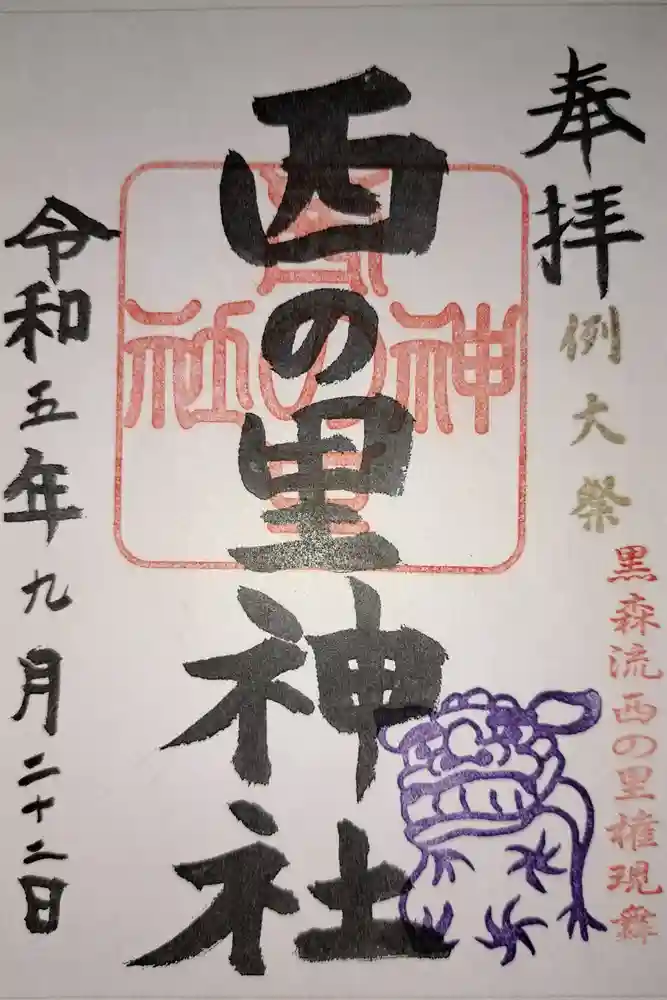 奉拝
例大祭
黒森流西の里権現舞
西の里神社
西の里神社
令和五年九月二十二日